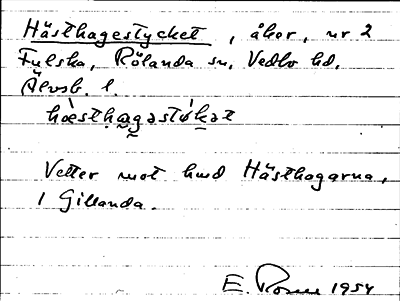 Hästhagestycket, åker, nr 2
Fulska, Rölanda sn, Vedbo hd,
Älvsb. l.
hæsthagastykat
Vetter mot hmd Hästhagarna,
i Gillanda.
E. Rosen 1954